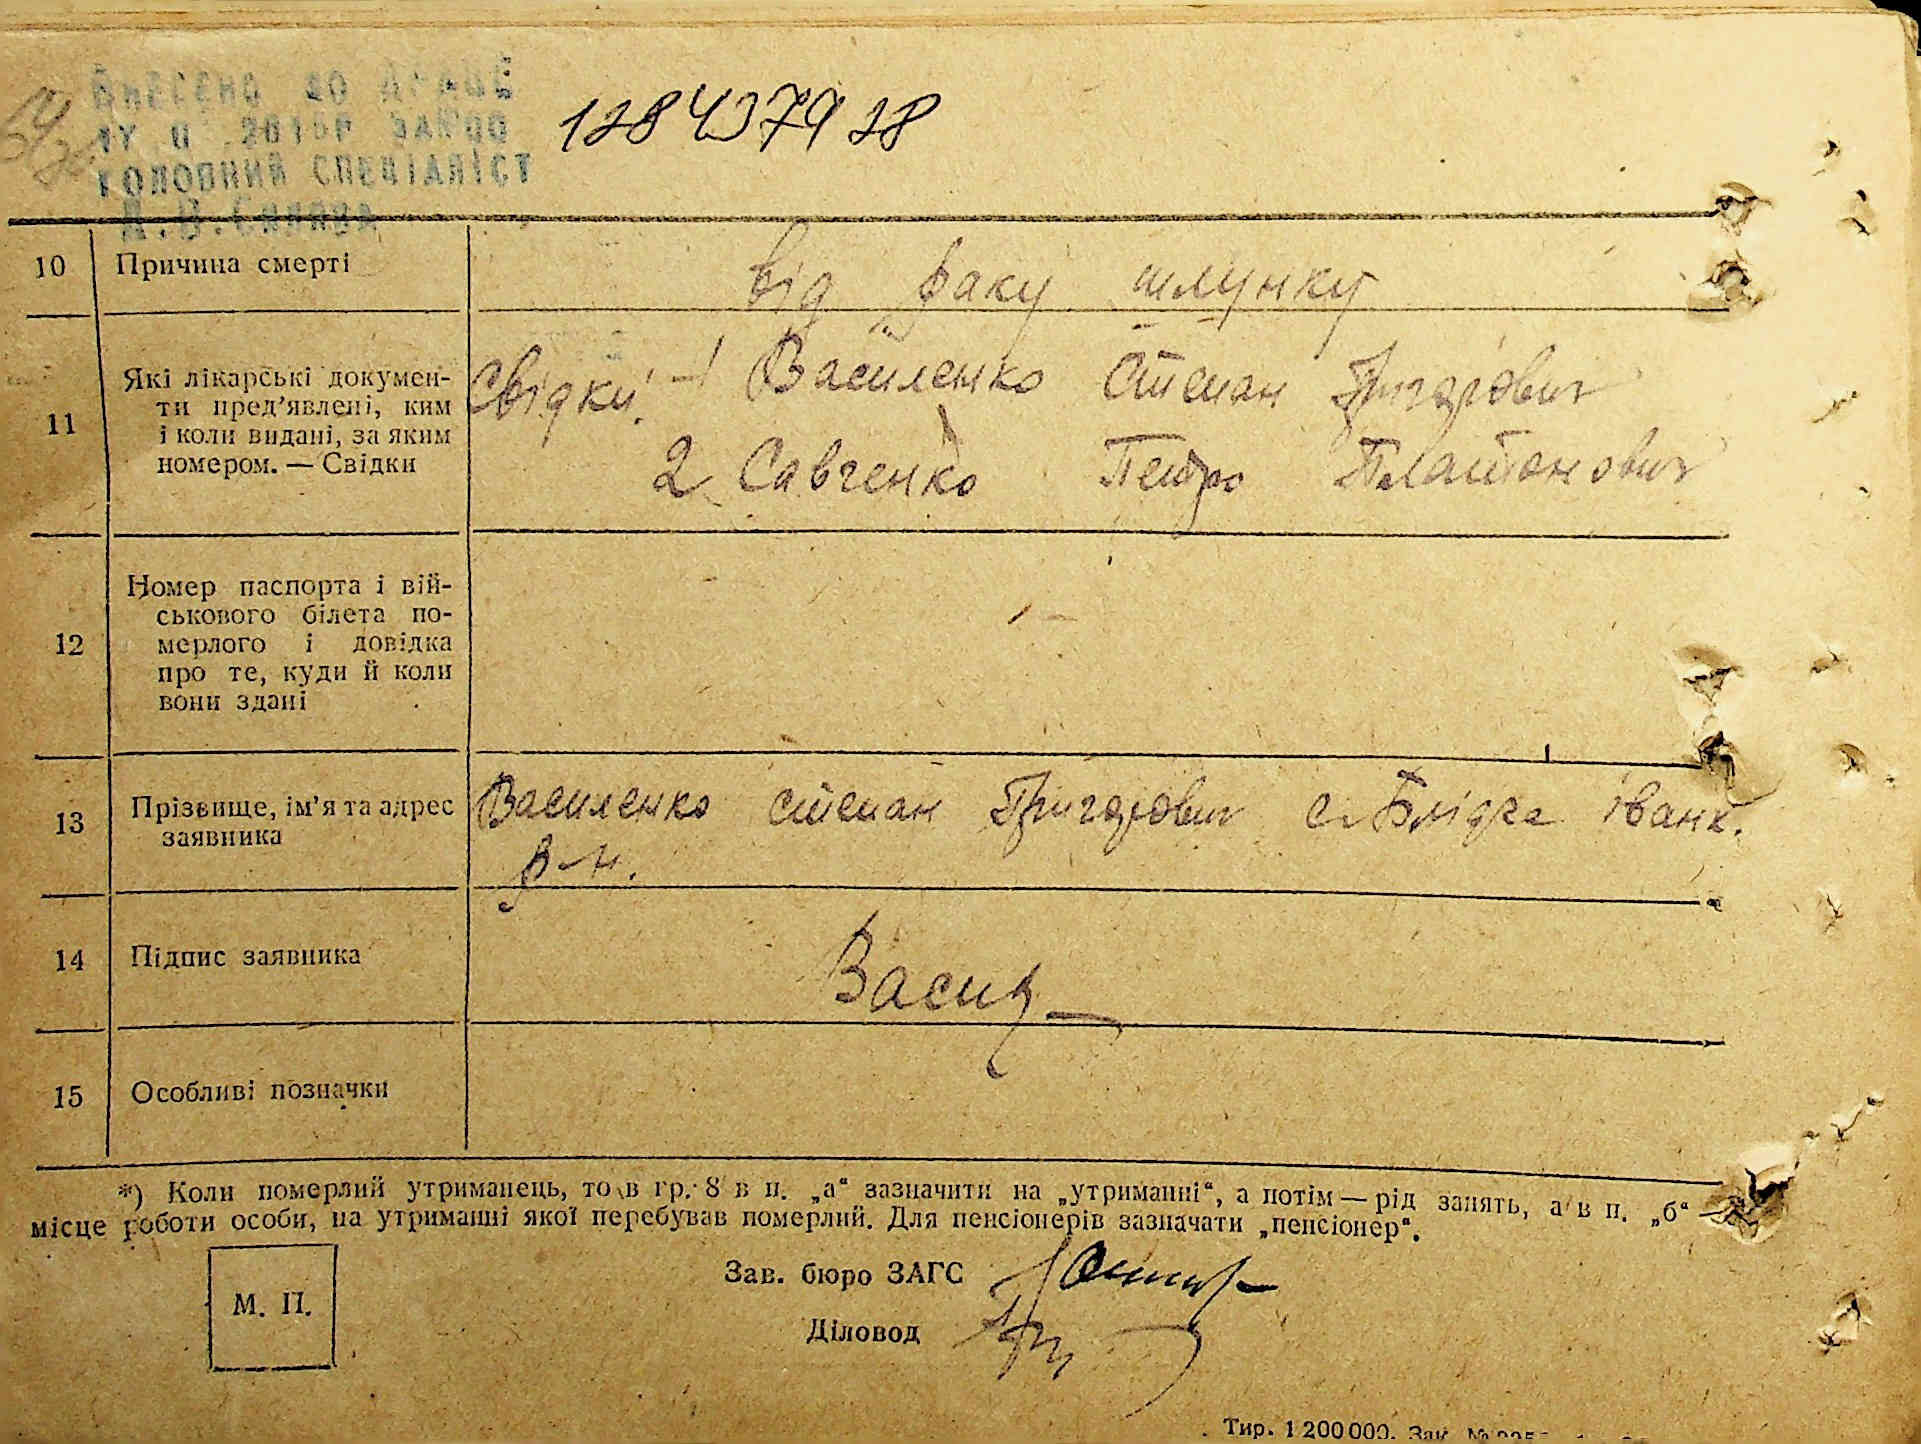 ВНЕСЕНО ДО
ГОЛОВНИЙ СПЕЦІАЛІСТ
10 Причина смерті від раку шлунку
11 Які лікарські докумен-
ти пред'явлені, ким
і коли видані, за яким
номером. — Свідки
Свідки: 1 Василенко Степан Григорович
2 Савченко Петро Платонович
12 Номер паспорта і вій-
ськового білета по-
мерлого і довідка
про те, куди й коли
вони здані
13 Прізвище, ім'я та адрес
заявника
Василенко Степан Григорович с. Блідча Іванк.
р-н.
14 Підпис заявника
15 Особливі позначки
*) Коли померлий утриманець, то в гр. 8 в п. „а“ зазначити на „утриманні“, а потім — рід занять, а в п. „б“ —
місце роботи особи, на утриманні якої перебував померлий. Для пенсіонерів зазначати „пенсіонер“.
М. П.
Зав. бюро ЗАГС
Діловод
Тир. 1 200 000. Зак. №